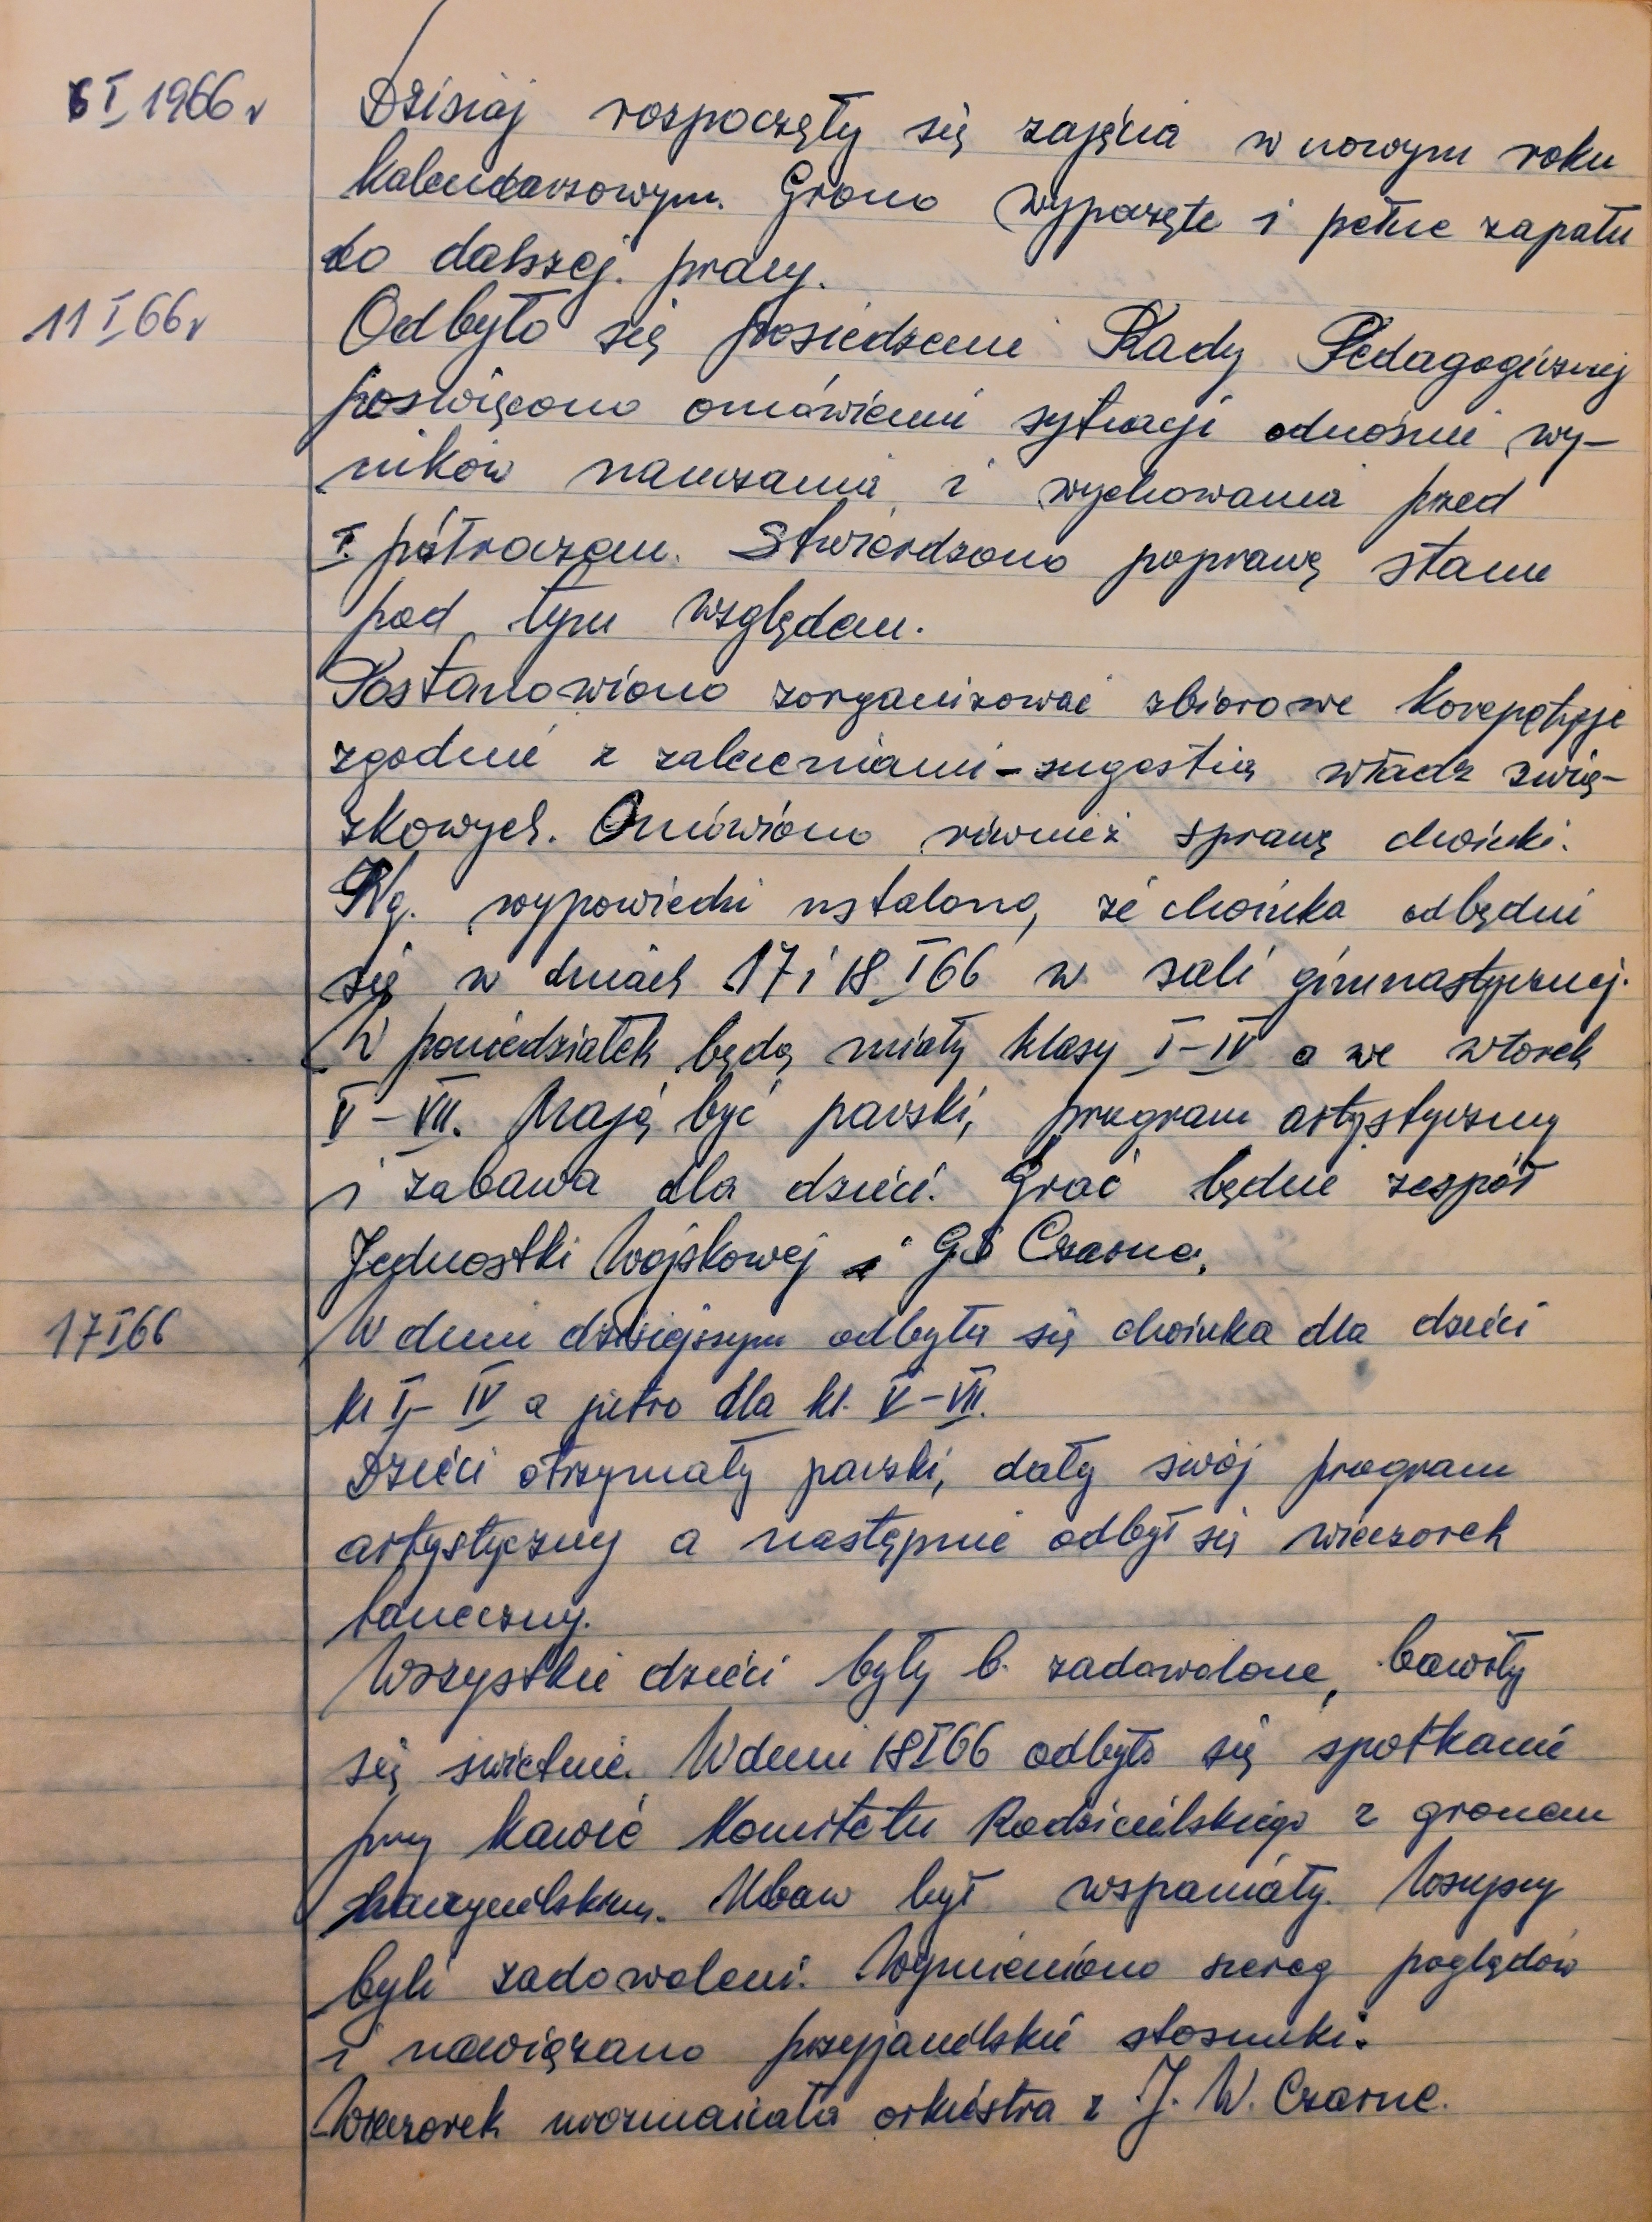 6 I 1966 r Dzisiaj rozpoczęły się zajęcia w nowym roku
kalendarzowym. Grono wypoczęte i pełne zapału
do dalszej pracy.
11 I 66 r Odbyło się posiedzenie Rady Pedagogicznej
poświęcone omówieniu sytuacji odnośnie wy-
ników nauczania i wychowania przed
I. półroczem. Stwierdzono poprawę stanu
pod tym względem.
Postanowiono zorganizować zbiorowe korepetycje
zgodnie z zaleceniami-sugestią władz zwią-
zkowych. Omówiono również sprawę choinki.
Wg. wypowiedzi ustalono, że choinka odbędzie
się w dniach 17 i 18 I 66 w sali gimnastycznej.
W poniedziałek będą miały klasy I-IV a we wtorek
V-VII. Mają być paczki, program artystyczny
i zabawa dla dzieci. Grać będzie zespół
Jednostki Wojskowej i GS Czarne.
17 I 66 W dniu dzisiejszym odbyła się choinka dla dzieci
kl I-IV a jutro dla kl. V-VII.
Dzieci otrzymały paczki, dały swój program
artystyczny a następnie odbył się wieczorek
taneczny.
Wszystkie dzieci były b. zadowolone, bawiły
się świetnie. W dniu 18 I 66 odbyło się spotkanie
przy kawie Komitetu Rodzicielskiego z gronem
nauczycielskim. Ubaw był wspaniały. Wszyscy
byli zadowoleni. Wymieniono szereg poglądów
i nawiązano przyjacielskie stosunki.
Wieczorek urozmaicała orkiestra z J. W. Czarne.